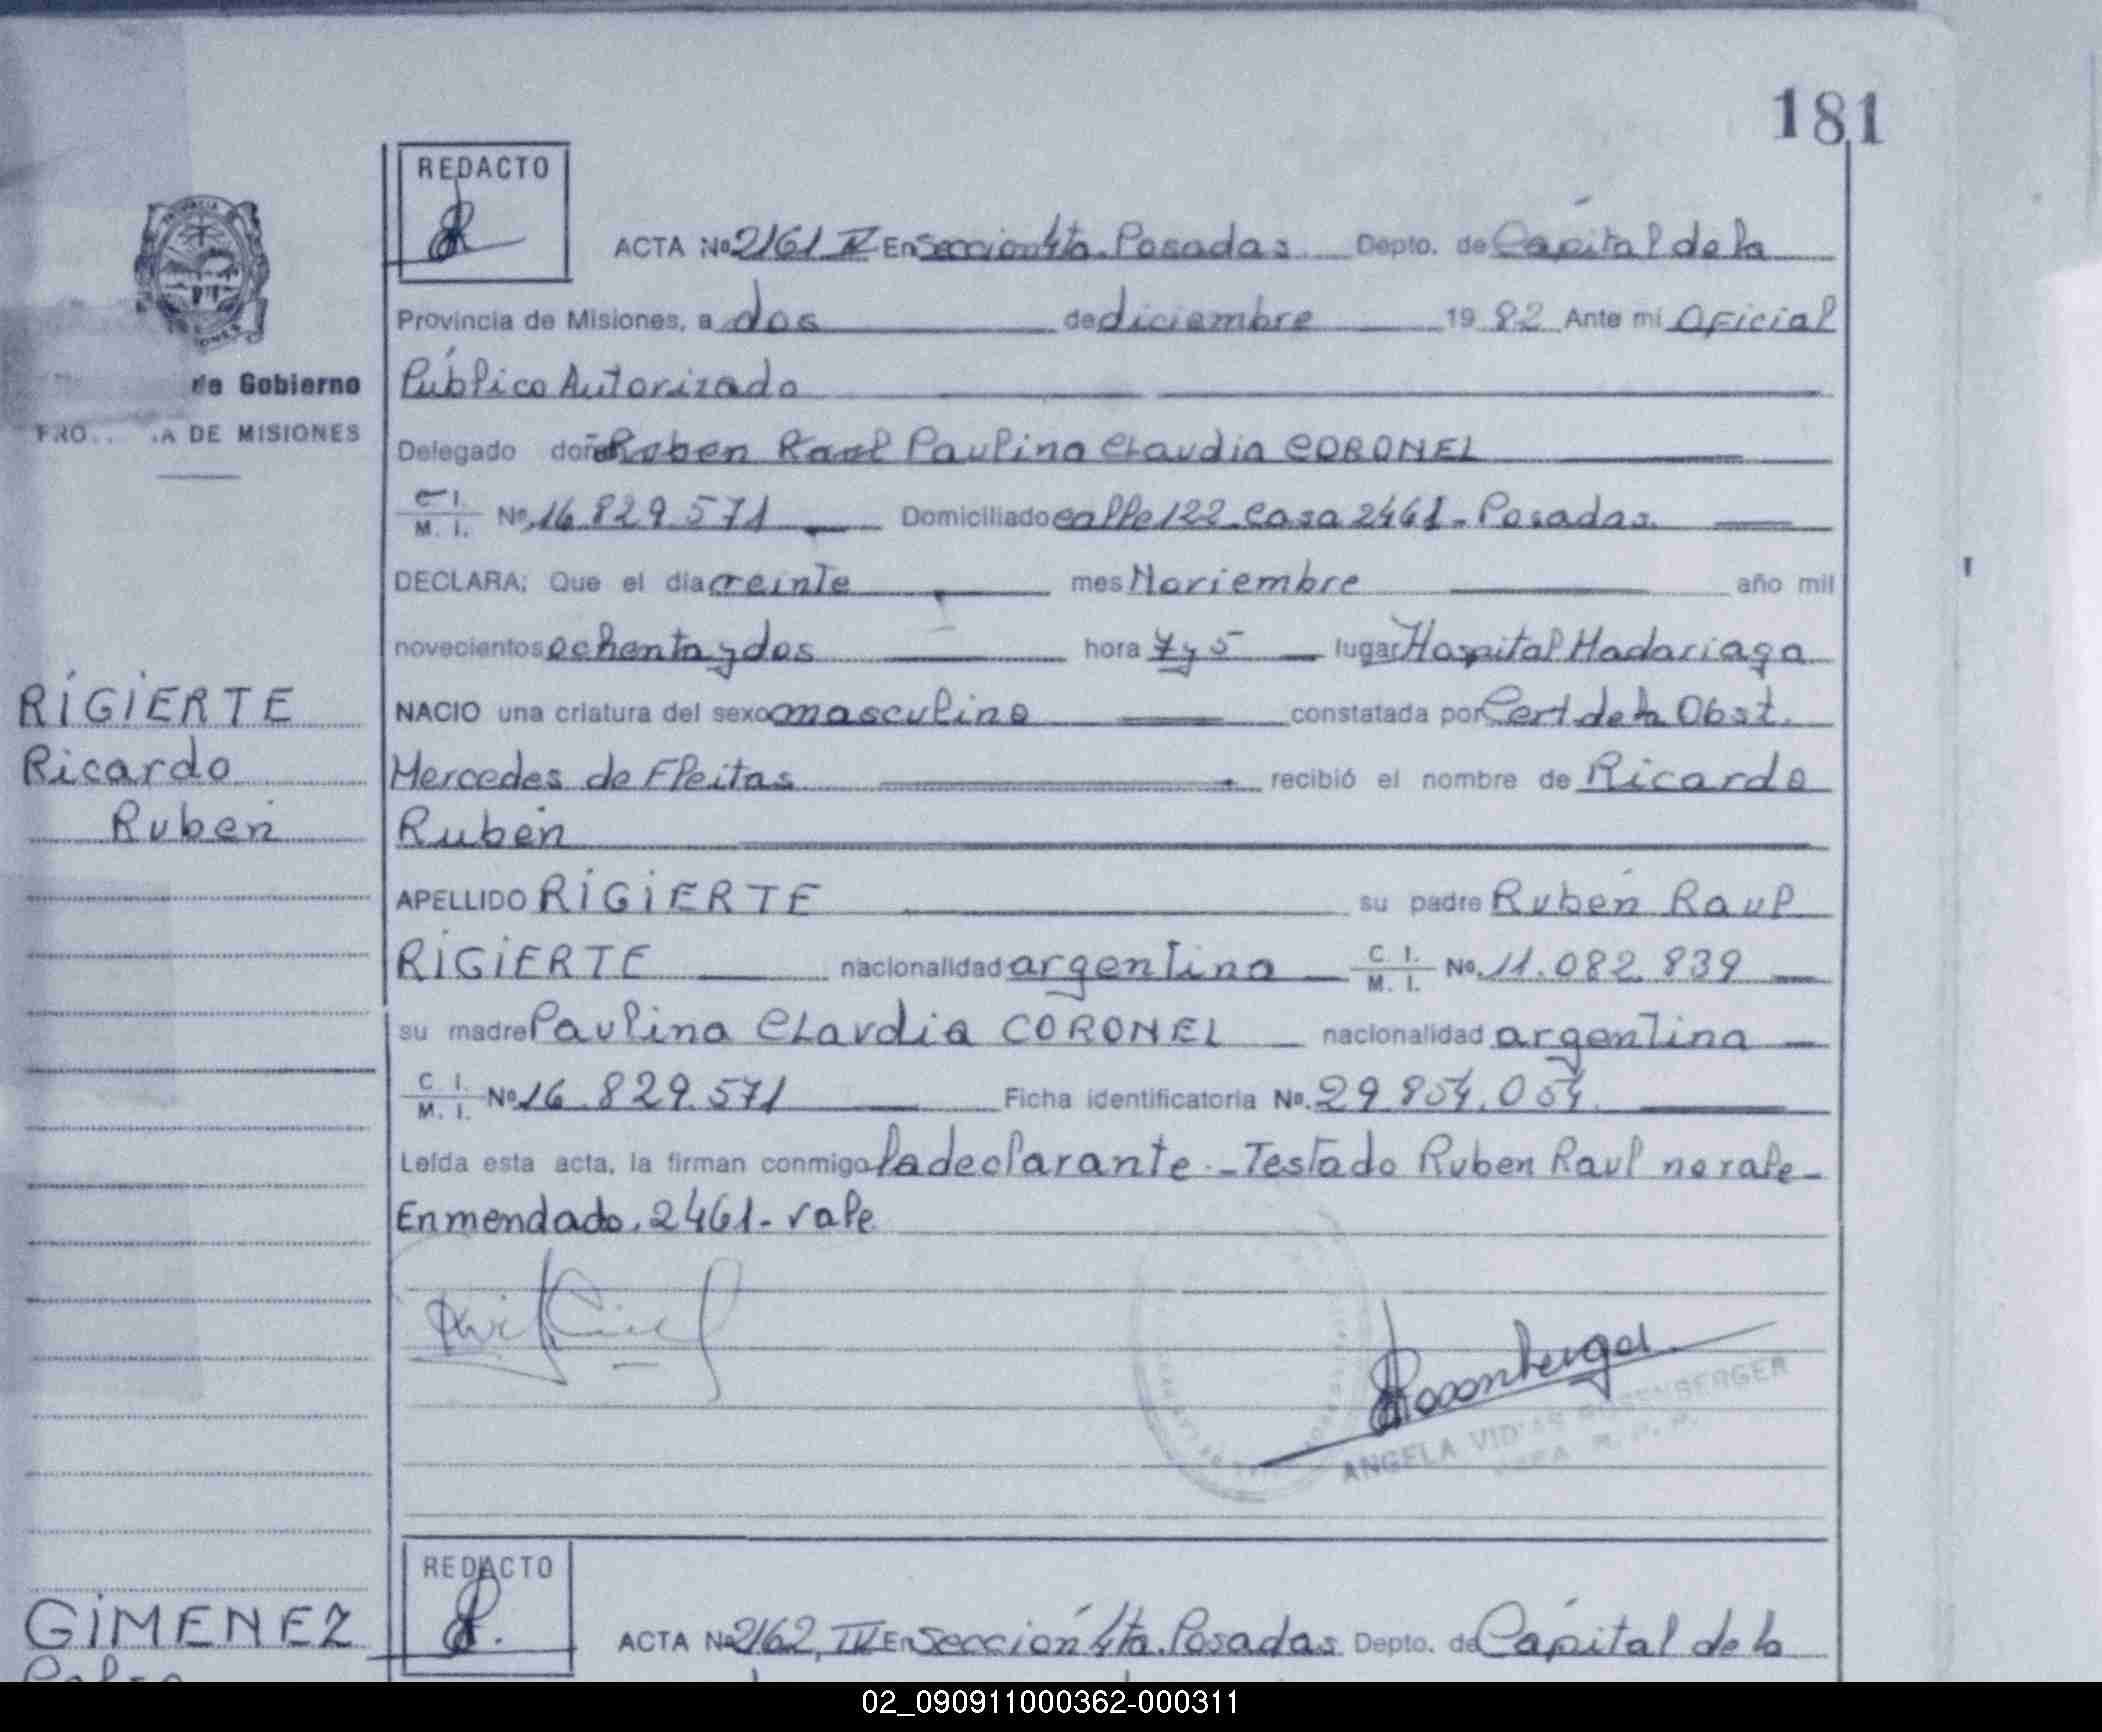 181
REDACTO
ACTA Nº 2161 IV En Sección 4ta. Posadas Depto. de Capital de la
Provincia de Misiones, a dos de diciembre 19 82 Ante mí Oficial
Público Autorizado
de Gobierno
DE MISIONES
Delegado doña Ruben Raul Paulina Claudia CORONEL
C. I.
M. I. Nº 16.829.571 Domiciliado calle 122 casa 2461 - Posadas
DECLARA: Que el día veinte mes Noviembre año mil
novecientos ochenta y dos hora 7 y 5 lugar Hospital Madariaga
RIGIERTE
Ricardo
Ruben
NACIO una criatura del sexo masculino constatada por Cert. de la Obst.
Mercedes de Fleitas recibió el nombre de Ricardo
Ruben
APELLIDO RIGIERTE su padre Rubén Raul
RIGIERTE nacionalidad argentina C. I. M. I. Nº 11.082.839
su madre Paulina Claudia CORONEL nacionalidad argentina
C. I. M. I. Nº 16.829.571 Ficha identificatoria Nº. 29.854.054
Leída esta acta, la firman conmigo la declarante.- Testado Ruben Raul no vale-
Enmendado. 2461- vale
Rosenberger
ANGELA ROSENBERGER
GIMENEZ
REDACTO
ACTA Nº 2162, IV En Sección 4ta. Posadas Depto. de Capital de la
02_090911000362-000311